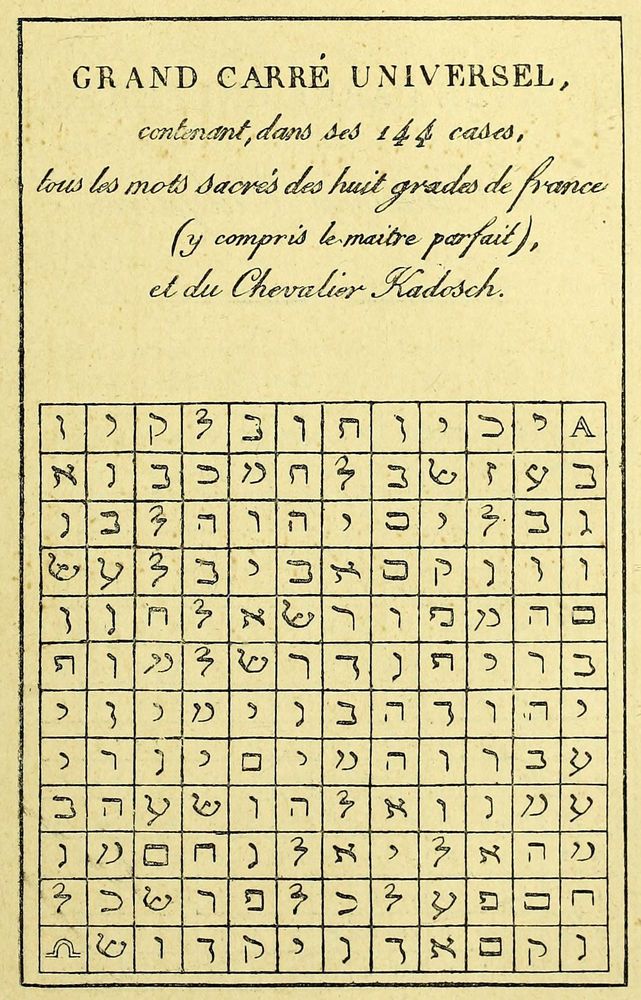 GRAND CARRÉ UNIVERSEL,
contenant, dans ses 144 cases,
tous les mots sacrés des huit grades de france
(y compris le maitre parfait),
et du Chevalier Kadosch.
A י כ י ו ח ו ב ל ק י ו
ב ע ז ש ב ל ח מ כ ב נ א
ג ב ל י ם י ה ו ה ל ב נ
ו ו נ ק ם א ב י ב ל ע ש
ם ה מ פ ו ר ש א ל ח נ ו
ב ר י ת נ ד ר ש ל מ ו ת
י ה ו ד ה ב נ י מ י ו י
ע ב ר ו ה מ י ם י נ ר י
ע מ נ ו א ל ה ו ש ע ה ב
מ ה א ל י א ל נ ח ם מ נ
ח ם פ ע ל כ ל פ ר ש כ ל
נ ק ם א ד נ י ק ד ו ש ♎